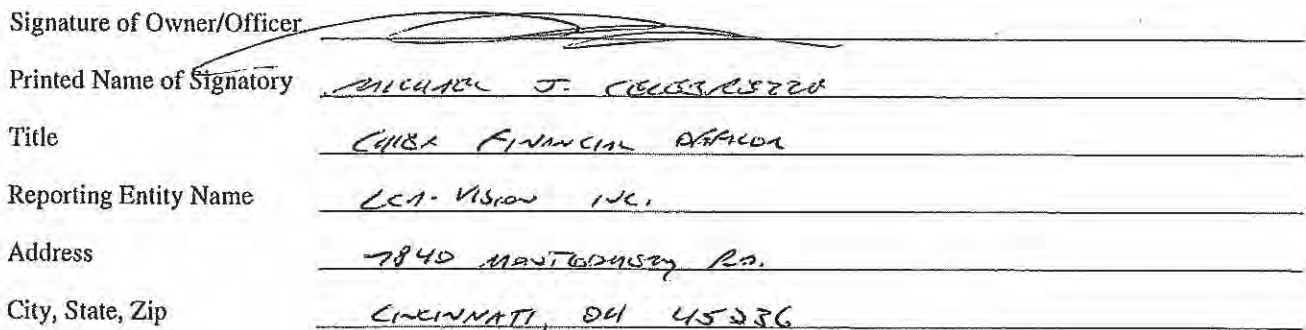 Signature of Owner/Officer
Printed Name of Signatory MICHAEL J. CELEBREZZE
Title CHIEF FINANCIAL OFFICER
Reporting Entity Name LCA-VISION INC.
Address 7840 MONTGOMERY RD.
City, State, Zip CINCINNATI, OH 45236